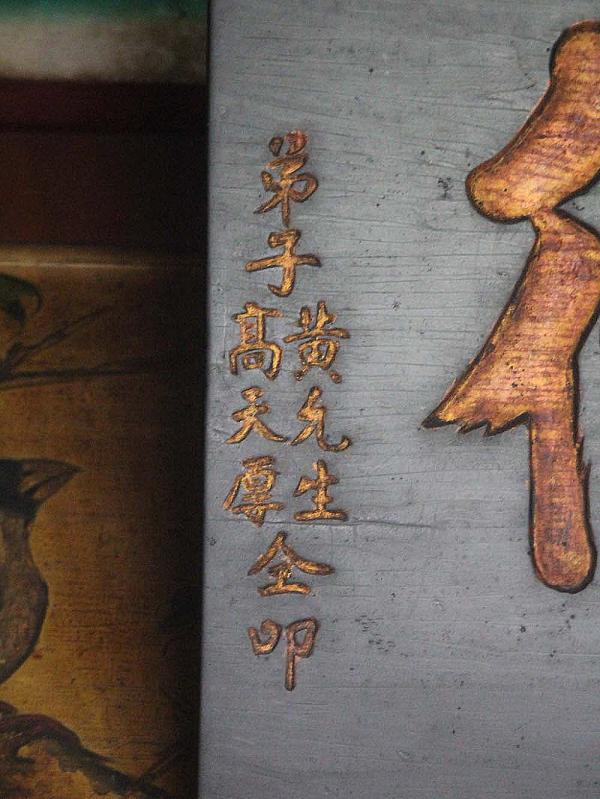 弟子
黄允生
髙天厚
仝叩